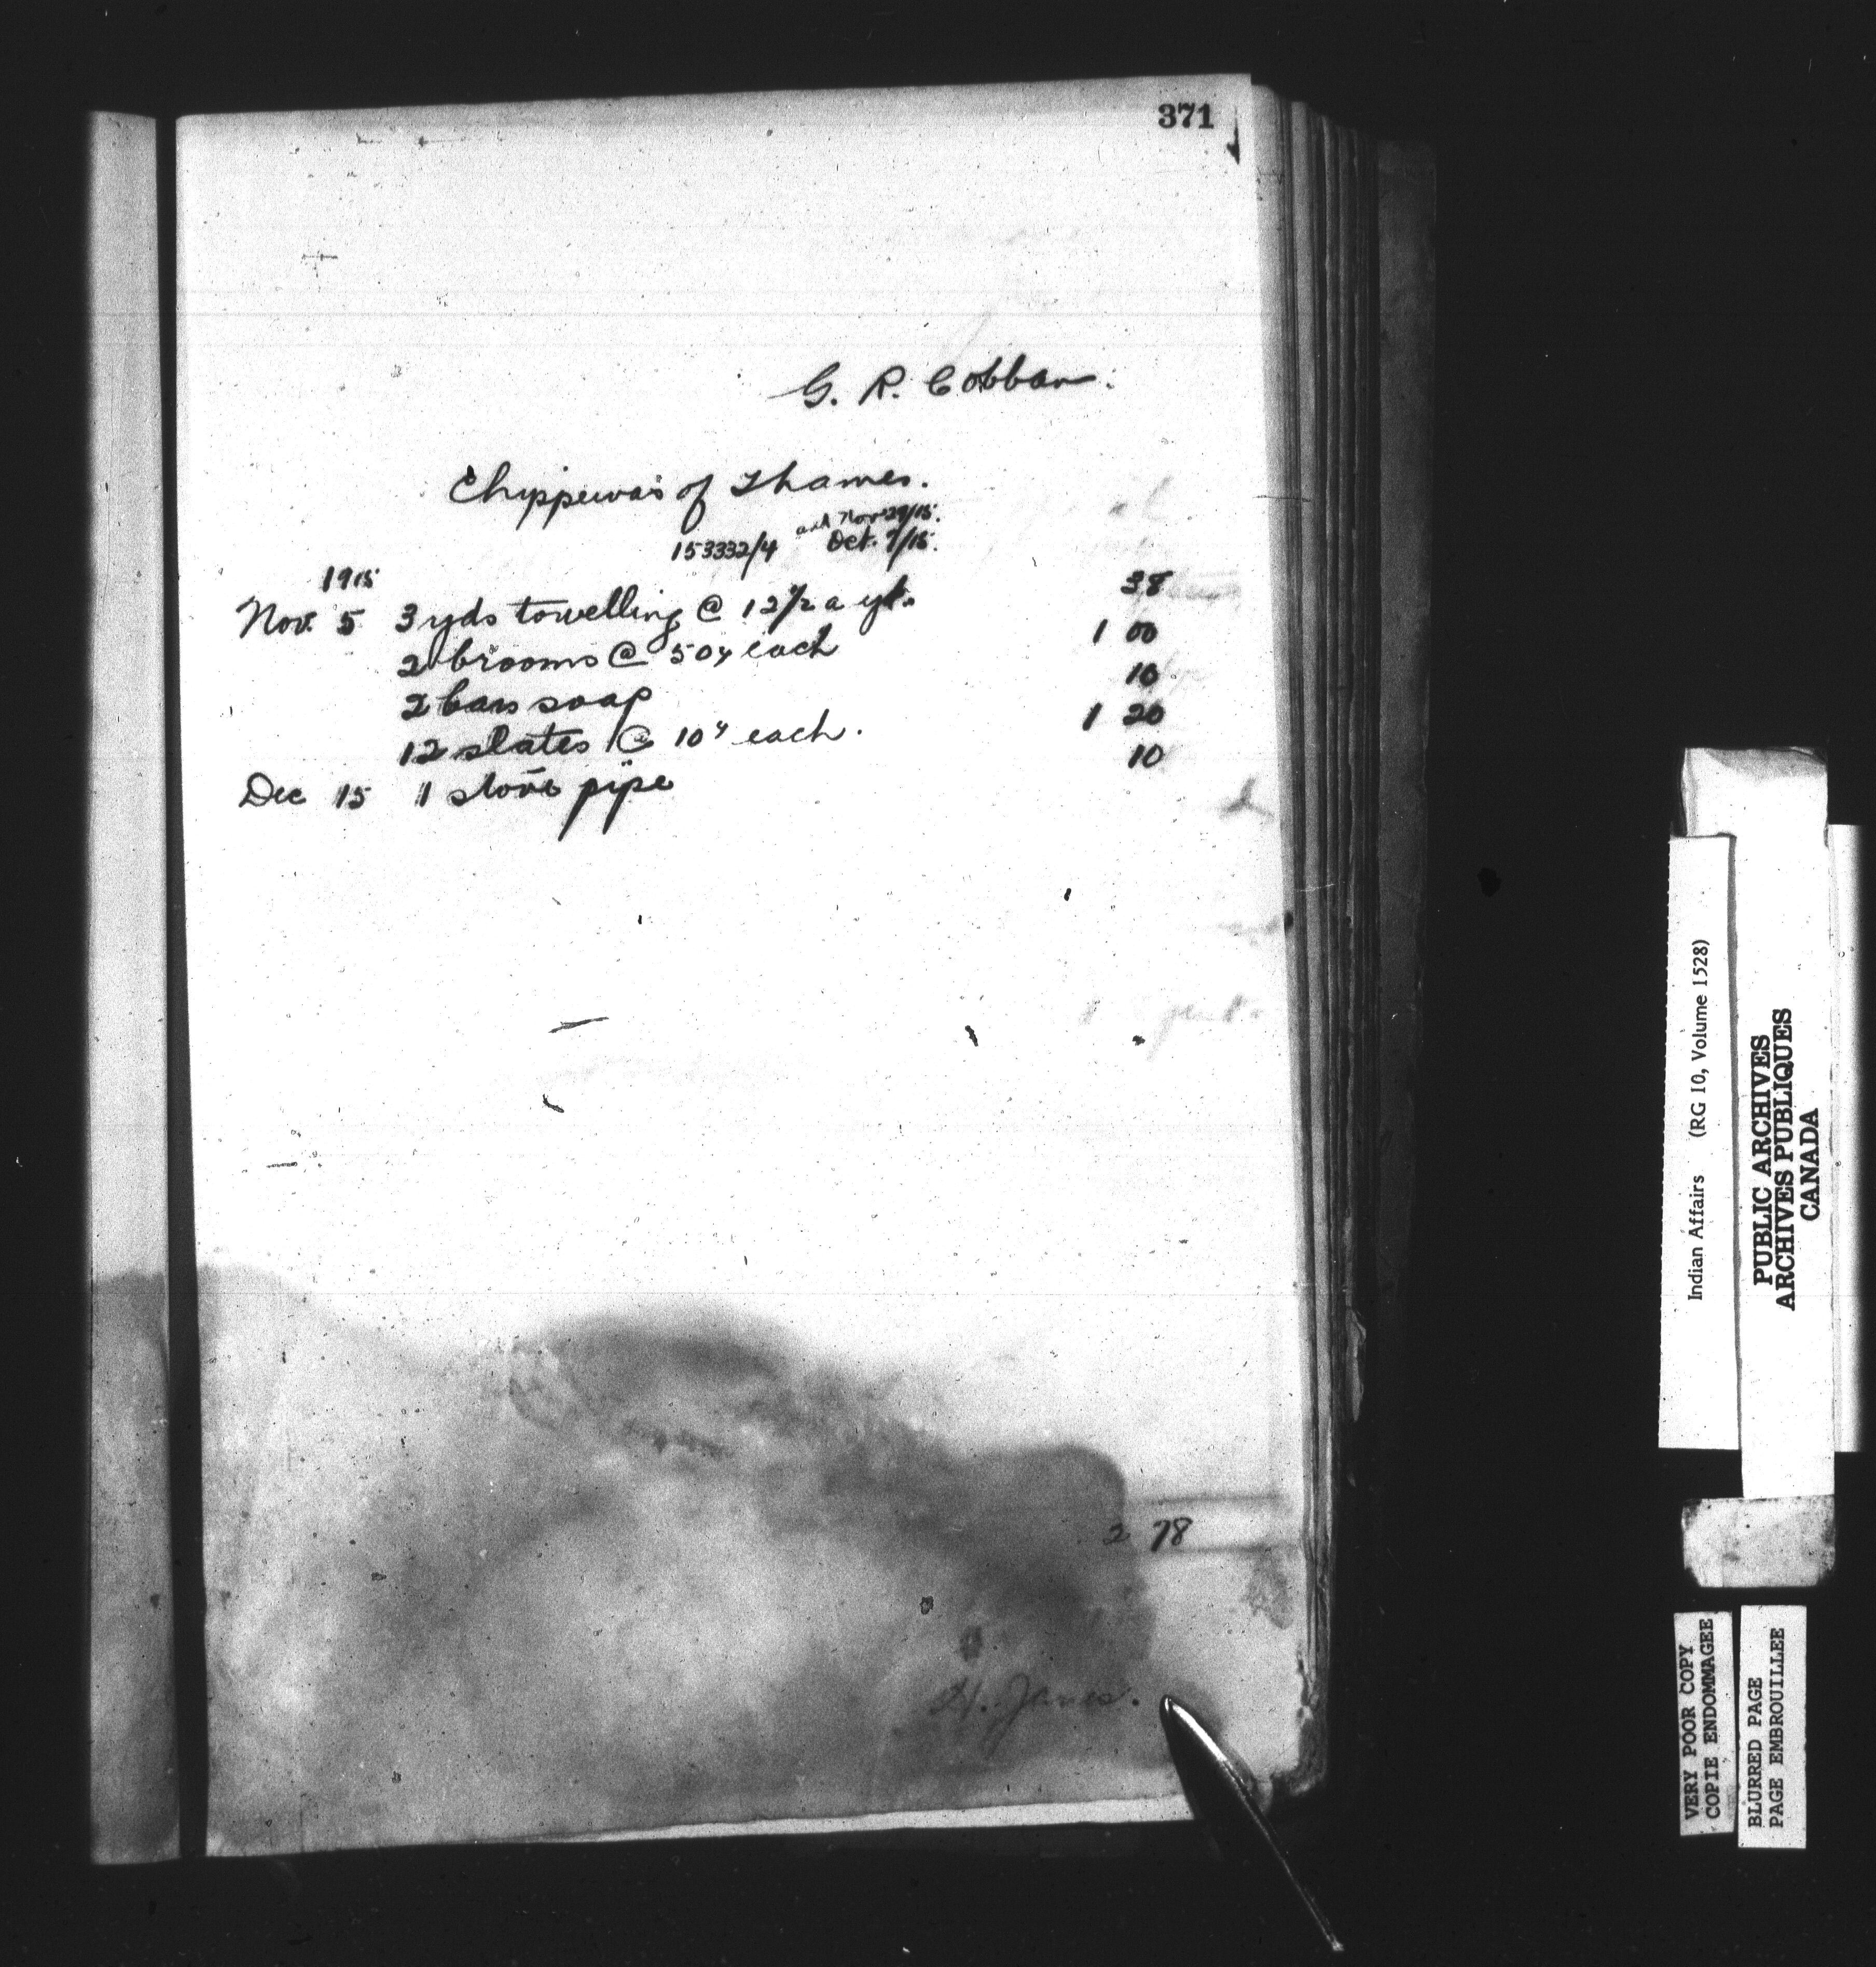 371
G. R. Cobban.
Chippewas of Thames.
and Nov 29/15.
153332/4 Oct. 7/15.
1915
Nov. 5 3 yds towelling @ 12 1/2 a yd. 38
2 brooms @ 50¢ each 1 00
2 bars soap 10
12 slates @ 10¢ each. 1 20
Dec 15 1 stove pipe 10
2 78
Indian Affairs (RG 10, Volume 1528)
PUBLIC ARCHIVES
ARCHIVES PUBLIQUES
CANADA
VERY POOR COPY
COPIE ENDOMMAGEE
BLURRED PAGE
PAGE EMBROUILLEE